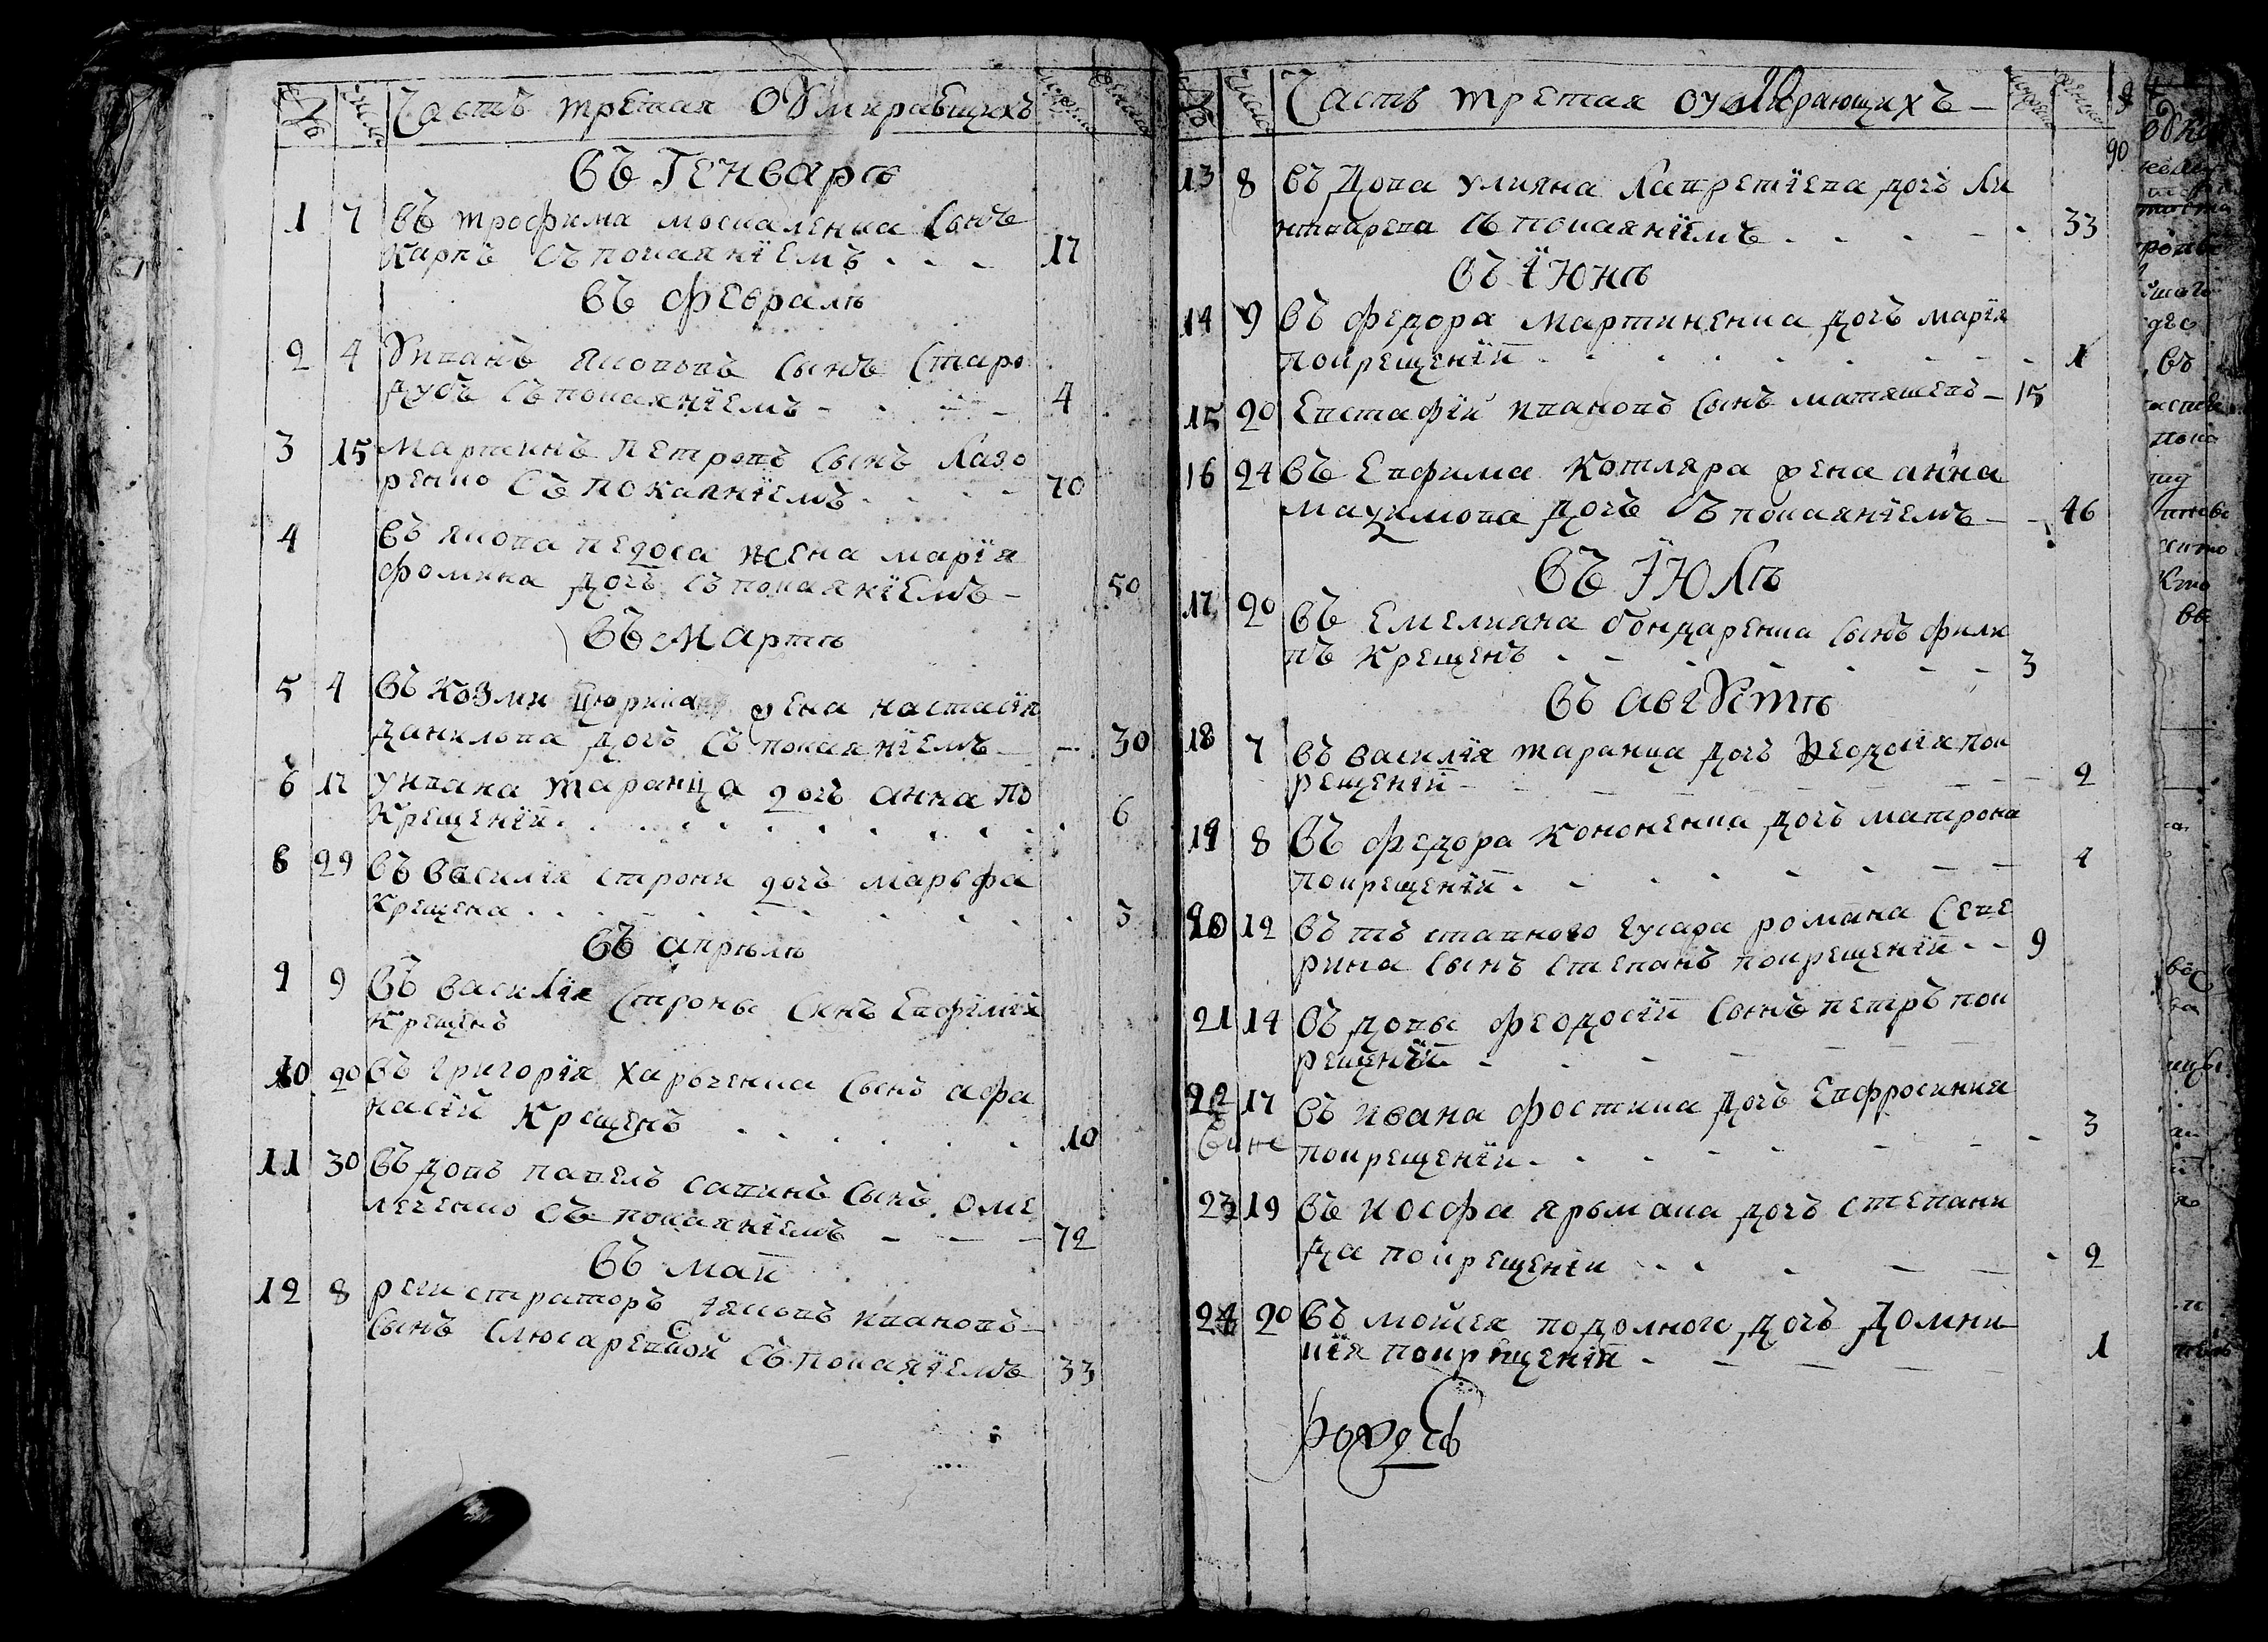 № число Часть третая о Умиравшихъ
Въ Генварѣ
1 7 Въ трофима москаленка Сынъ
Карпъ Съ покаянїемъ 17
Въ февралѣ
2 4 Иванъ яковъвъ Сынъ Старо
дубъ Съ покаянїемъ 4
3 15 Мартинъ Петровъ Сынъ Лазо
ренко Съ покаянїемъ 70
4 Въ якова недоса жена марїя
фомина дочь Съ покаянїемъ 50
Въ Мартѣ
5 4 Въ Козми жена настасїя
данилова дочь Съ покаянїемъ 30
6 17 У ивана таранца дочь анна по
Крещенїи 6
8 29 Въ Василїя строки дочь марьфа
Крещена 3
Въ апрѣлѣ
9 9 Въ Василїя Строкы Синъ Евфимїй
Крещенъ
10 20 Въ григорїя Харьченка Сынъ афа
насїй Крещенъ 10
11 30 Вдовъ павелъ савинъ Сынъ оме
лченко Съ покаянїемъ 72
Въ маи
12 8 регистраторъ їяковъ ивановъ
Сынъ Слюсаревской Съ покаянїемъ 33
№ число Часть третая о умирающихъ
13 8 Въдова улияна Лаврентїева дочь Ли
нтварева Съ покаянїемъ 33
Въ Їюнѣ
14 9 Въ федора мартиненка дочь марїя
покрещенїи 1
15 20 Евстафїй ивановъ Сынъ матяшевъ 15
16 24 Въ Евфима Котляра жена анна
мазимова дочь Съ покаянїемъ 46
Въ Їюлѣ
17 20 Въ Емелияна бондаренка Сынъ фили
пъ Крещенъ 3
Въ августѣ
18 7 Въ василїя таранца дочь Феодосїя пок
рещенїи 2
19 8 Въ федора Кононенка дочь матрона
покрещенїи 4
20 12 Въ гусара романа Севе
рина Сынъ Степанъ покрещенїи 9
21 14 Въ довы феодосїи Сынъ петръ пок
рещенїи
22 17 Въ ивана фостика дочь Евфросиния
покрещенїи 3
23 19 Въ иосфа ярьмака дочь степани
да покрещенїи 2
24 20 Въ мойсея подолного дочь Домни
кїя покрещенїи 1
90